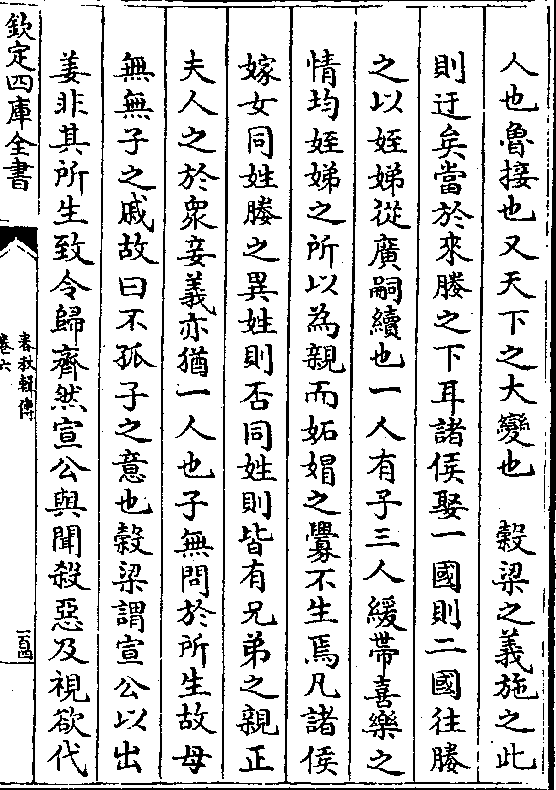 人也魯接也又天下之大變也　穀梁之義施之此
則迂矣當於來媵之下耳諸侯娶一國則二國往媵
之以姪娣從廣嗣續也一人有子三人緩帶喜樂之
情均姪娣之所以為親而妬媢之釁不生焉凡諸侯
嫁女同姓媵之異姓則否同姓則皆有兄弟之親正
夫人之於衆妾義亦猶一人也子無問於所生故母
無無子之戚故曰不孤子之意也穀梁謂宣公以出
姜非其所生致令歸齊然宣公與聞殺惡及視欲代
欽定四庫全書
春秋輯傳
卷六